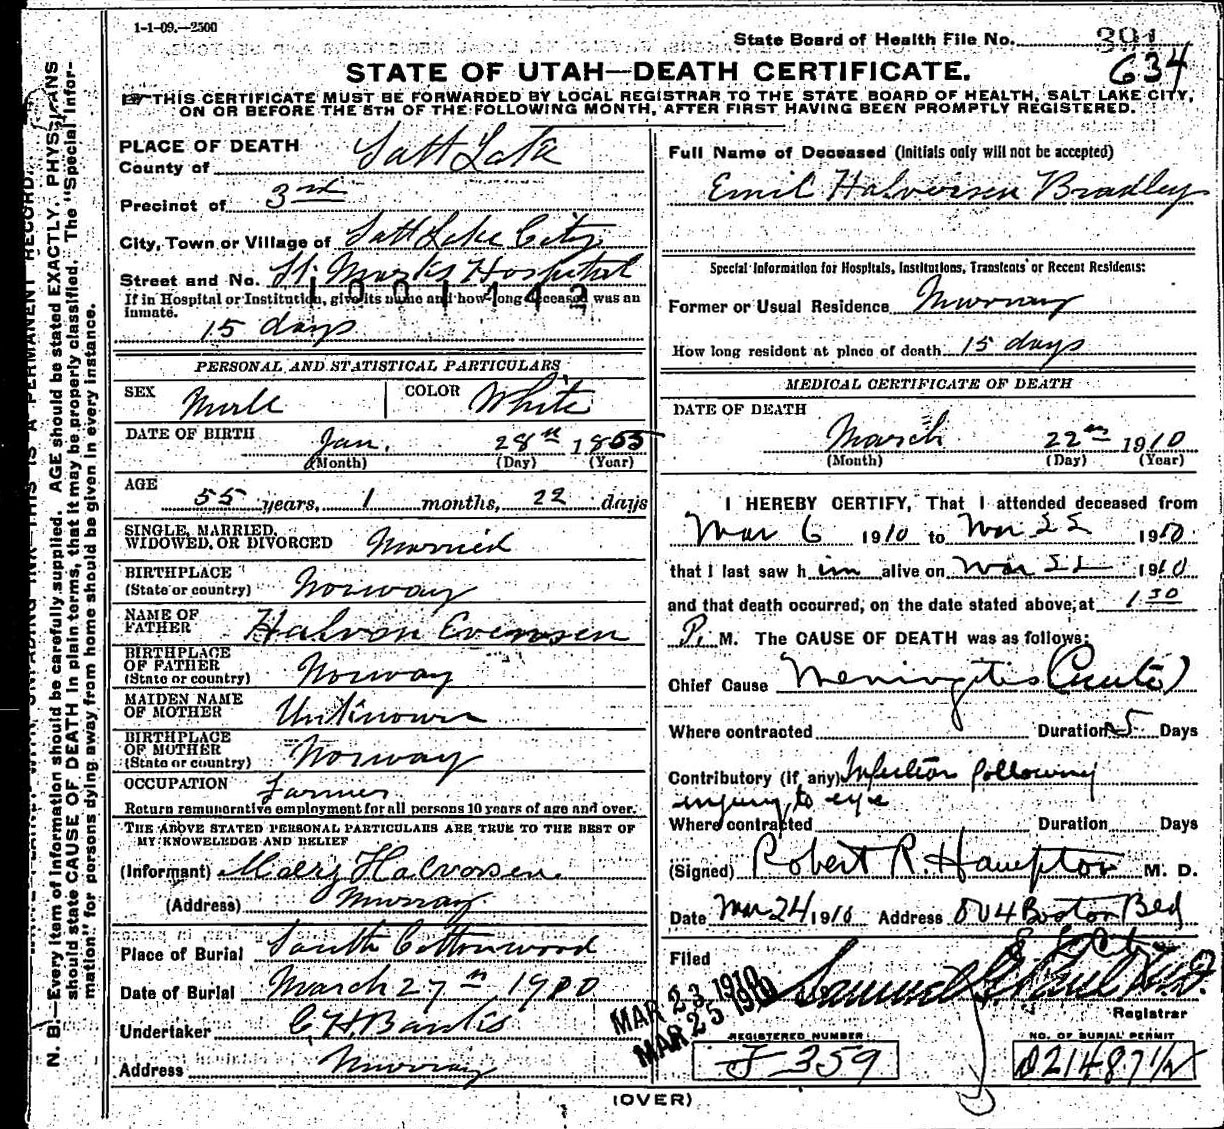 1-1-09.—2500
State Board of Health File No. 391
634
STATE OF UTAH—DEATH CERTIFICATE.
THIS CERTIFICATE MUST BE FORWARDED BY LOCAL REGISTRAR TO THE STATE BOARD OF HEALTH, SALT LAKE CITY,
ON OR BEFORE THE 5TH OF THE FOLLOWING MONTH, AFTER FIRST HAVING BEEN PROMPTLY REGISTERED.
PLACE OF DEATH
County of Salt Lake
Precinct of 3rd
City, Town or Village of Salt Lake City
Street and No. St. Marks Hospital
If in Hospital or Institution, give its name and how long deceased was an
inmate.
1001742
15 days
PERSONAL AND STATISTICAL PARTICULARS
SEX Male COLOR White
DATE OF BIRTH Jan. 28th 1855
(Month) (Day) (Year)
AGE
55 years, 1 months, 22 days
SINGLE, MARRIED,
WIDOWED, OR DIVORCED Married
BIRTHPLACE
(State or country) Norway
NAME OF
FATHER Halvon Evensen
BIRTHPLACE
OF FATHER
(State or country) Norway
MAIDEN NAME
OF MOTHER Unknown
BIRTHPLACE
OF MOTHER
(State or country) Norway
OCCUPATION Farmer
Return remunerative employment for all persons 10 years of age and over.
THE ABOVE STATED PERSONAL PARTICULARS ARE TRUE TO THE BEST OF
MY KNOWLEDGE AND BELIEF
(Informant) Mary Halvorsen
(Address) Murray
Place of Burial South Cottonwood
Date of Burial March 27th 1910
Undertaker C H. Banks
Address Murray
Full Name of Deceased (Initials only will not be accepted)
Emil Halversen Bradley
Special Information for Hospitals, Institutions, Transients or Recent Residents:
Former or Usual Residence Murray
How long resident at place of death 15 days
MEDICAL CERTIFICATE OF DEATH
DATE OF DEATH
March 22 1910
(Month) (Day) (Year)
I HEREBY CERTIFY, That I attended deceased from
Mar 6 1910 to Mar 22 1910
that I last saw h im alive on Mar 22 1910
and that death occurred, on the date stated above, at 1 30
P. M. The CAUSE OF DEATH was as follows:
Chief Cause Meningitis (Acute)
Where contracted Duration 5 Days
Contributory (if any) Infection following
injury to eye
Where contracted Duration Days
(Signed) Robert R. Hampton M. D.
Date Mar 24 1910 Address 804 Boston Bld
Filed
MAR 23 1910
MAR 25 1910
Samuel G. Paul M.D.
Registrar
REGISTERED NUMBER
J 359
NO. OF BURIAL PERMIT
(OVER)
N. B.—Every item of information should be carefully supplied. AGE should be stated EXACTLY. PHYSICIANS
should state CAUSE OF DEATH in plain terms, that it may be properly classified. The "Special Infor-
mation" for persons dying away from home should be given in every instance.